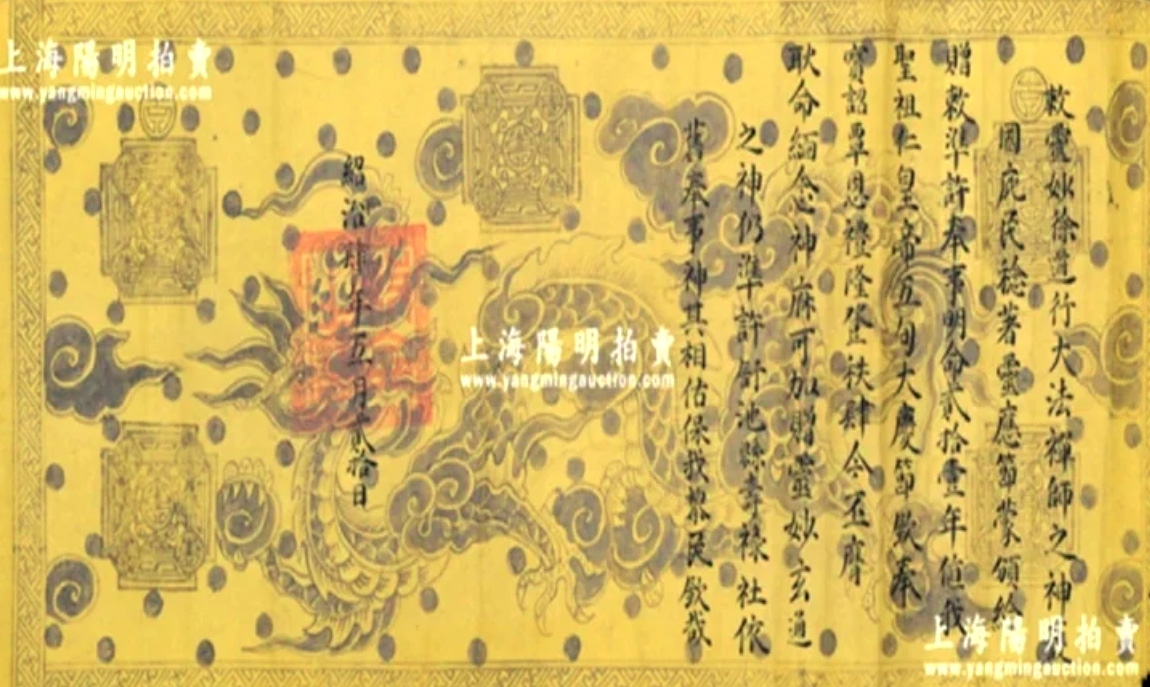 敕靈妙徐道行大法禪師之神
國庇民稔著靈應節蒙頒給
贈敕準許奉事明命貳拾壹年值我
聖祖仁皇帝五旬大慶節欽奉
寶詔覃恩禮隆登秩肆今丕膺
耿命緬念神庥可加贈靈妙玄通
之神仍準許池縣壽祿社依
舊奉事神其相佑保我黎民欽哉
紹治肆年五月貳拾日
上海陽明拍賣
www.yangmingauction.com
上海陽明拍賣
www.yangmingauction.com
上海陽明拍賣
www.yangmingauction.com